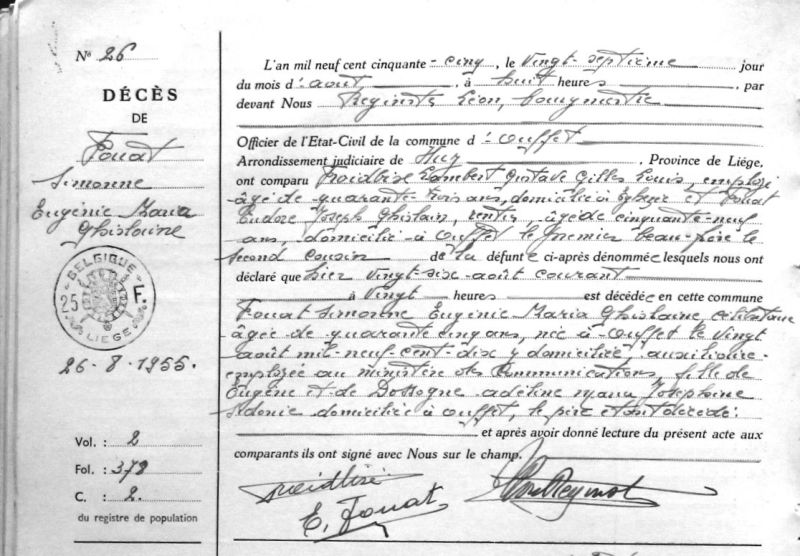 N° 26
DÉCÈS
DE
Fouat
Simonne
Eugénie Maria
Ghislaine
BELGIQUE
25 F.
LIEGE
26-8-1955.
Vol. : 2
Fol. : 378
C. : 2.
du registre de population
L'an mil neuf cent cinquante-cinq, le vingt-septième jour
du mois d'août, à huit heures, par
devant Nous Léon, bourgmestre
Officier de l'Etat-Civil de la commune d'Ouffet
Arrondissement judiciaire de Huy, Province de Liége,
ont comparu Froidbise Lambert Gustave Gilles Louis, employé
âgé de quarante-trois ans, domicilié à et Fouat
Eudore Joseph Ghislain, rentier, âgé de cinquante-neuf
ans, domicilié à Ouffet le premier beau-frère le
second cousin de la défunte ci-après dénommée lesquels nous ont
déclaré que hier vingt-six août courant
à vingt heures est décédée en cette commune
Fouat Simonne Eugénie Maria Ghislaine, célibataire
âgée de quarante cinq ans, née à Ouffet le vingt
août mil-neuf-cent-dix y domiciliée, auxiliaire-
employée au ministère des Communications, fille de
Eugène et de Dossogne adeline maria Josephine
domiciliée à Ouffet, le père étant décédé.
et après avoir donné lecture du présent acte aux
comparants ils ont signé avec Nous sur le champ.
Froidbise
E. Fouat